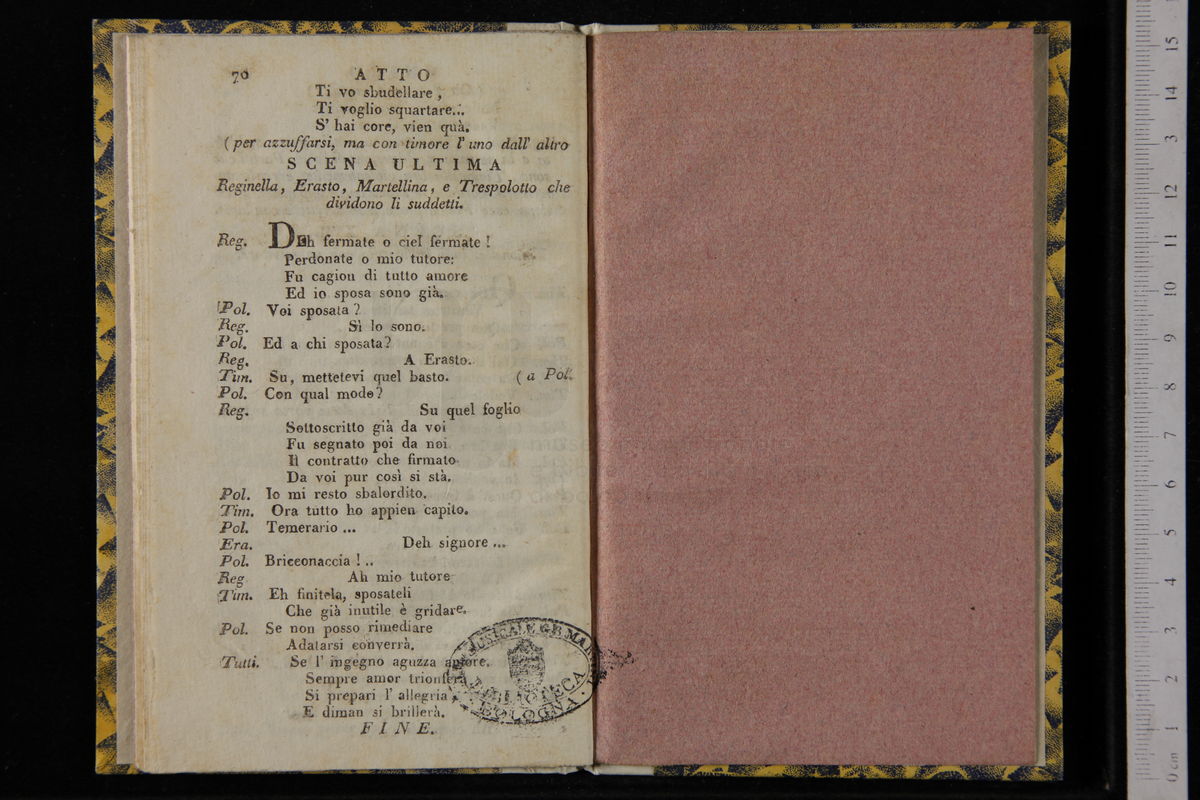 70 ATTO
Ti vo sbudellare,
Ti voglio squartare...
S' hai core, vien quà.
(per azzuffarsi, ma con timore l' uno dall' altro
SCENA ULTIMA
Reginella, Erasto, Martellina, e Trespolotto che
dividono li suddetti.
Reg. Deh fermate o ciel fermate!
Perdonate o mio tutore:
Fu cagion di tutto amore
Ed io sposa sono già.
Pol. Voi sposata?
Reg. Sì lo sono.
Pol. Ed a chi sposata?
Reg. A Erasto.
Tim. Su, mettetevi quel basto. (a Pol.
Pol. Con qual modo?
Reg. Su quel foglio
Sottoscritto già da voi
Fu segnato poi da noi
Il contratto che firmato
Da voi pur così si stà.
Pol. Io mi resto sbalordito.
Tim. Ora tutto ho appien capito.
Pol. Temerario ...
Era. Deh signore ...
Pol. Bricconaccia! ..
Reg Ah mio tutore
Tim. Eh finitela, sposateli
Che già inutile è gridare.
Pol. Se non posso rimediare
Adatarsi converrà.
Tutti. Se l' ingegno aguzza amore.
Sempre amor trionferà
Si prepari l' allegria,
E diman si brillerà.
FINE.
BIBLIOTECA
BOLOGNA
0 cm 1 2 3 4 5 6 7 8 9 10 11 12 13 14 15